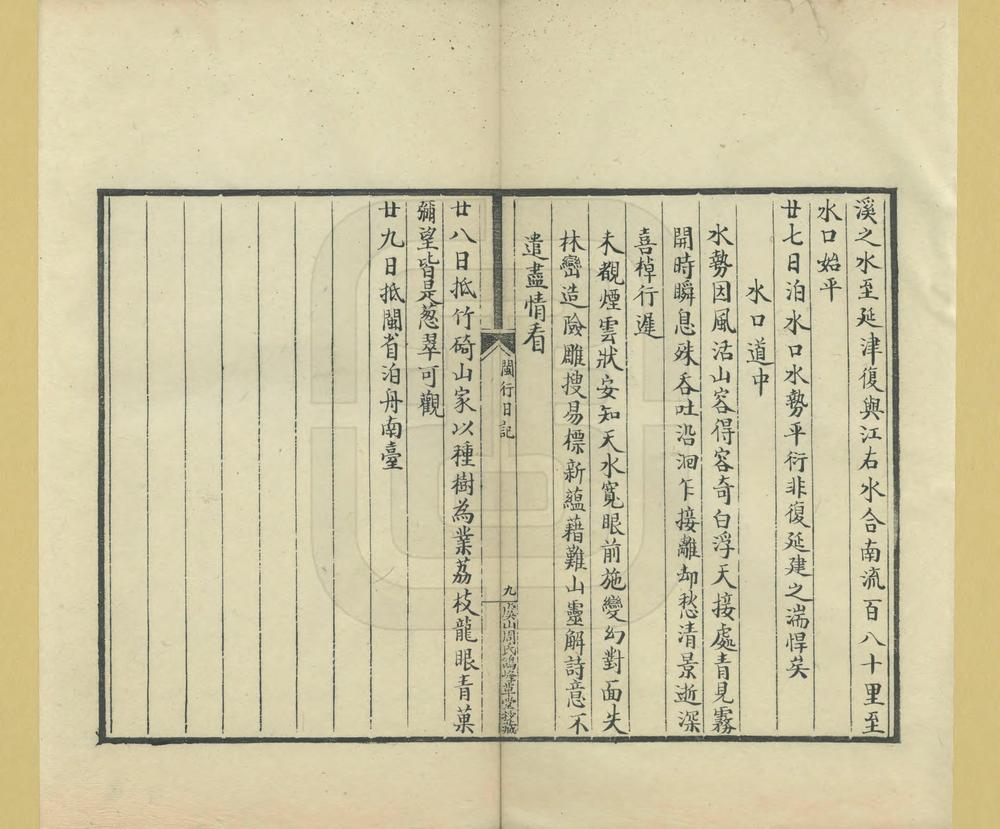 溪之水至延津復與江右水合南流一百八十里至
水口始平
廿七日泊水口水勢平衍非復延建之湍悍矣
水口道中
水勢因風活山容得容奇白浮天接處青見霧
開時瞬息殊吞吐沿洄乍接離却愁清景逝深
喜棹行遲
未觀煙雲狀安知天水寬眼前施變幻對面失
林巒造險雕搜易標新蘊藉難山靈解詩意不
遣盡情看
閩行日記
九
虞山周氏鴿峰草堂鈔藏
廿八日抵竹碕山家以種樹為業荔枝龍眼青菓
彌望皆是葱翠可觀
廿九日抵閩省泊舟南臺